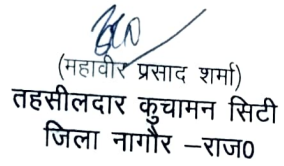 (महावीर प्रसाद शर्मा)
तहसीलदार कुचामन सिटी
जिला नागौर –राज0